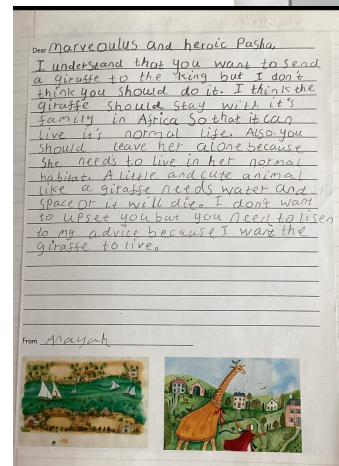 Dear marveoulus and heroic Pasha,
I understand that you want to send
a giraffe to the king but I don't
think you should do it. I think the
giraffe should stay with it's
family in Africa So that it can
live it's normal life. Also, you
should leave her alone because
She needs to live in her normal
habitat. A little and cute animal
like a giraffe needs water and
space or it will die. I don't want
to upset you but you need to lisen
to my advice because I want the
giraffe to live.
From Anayah